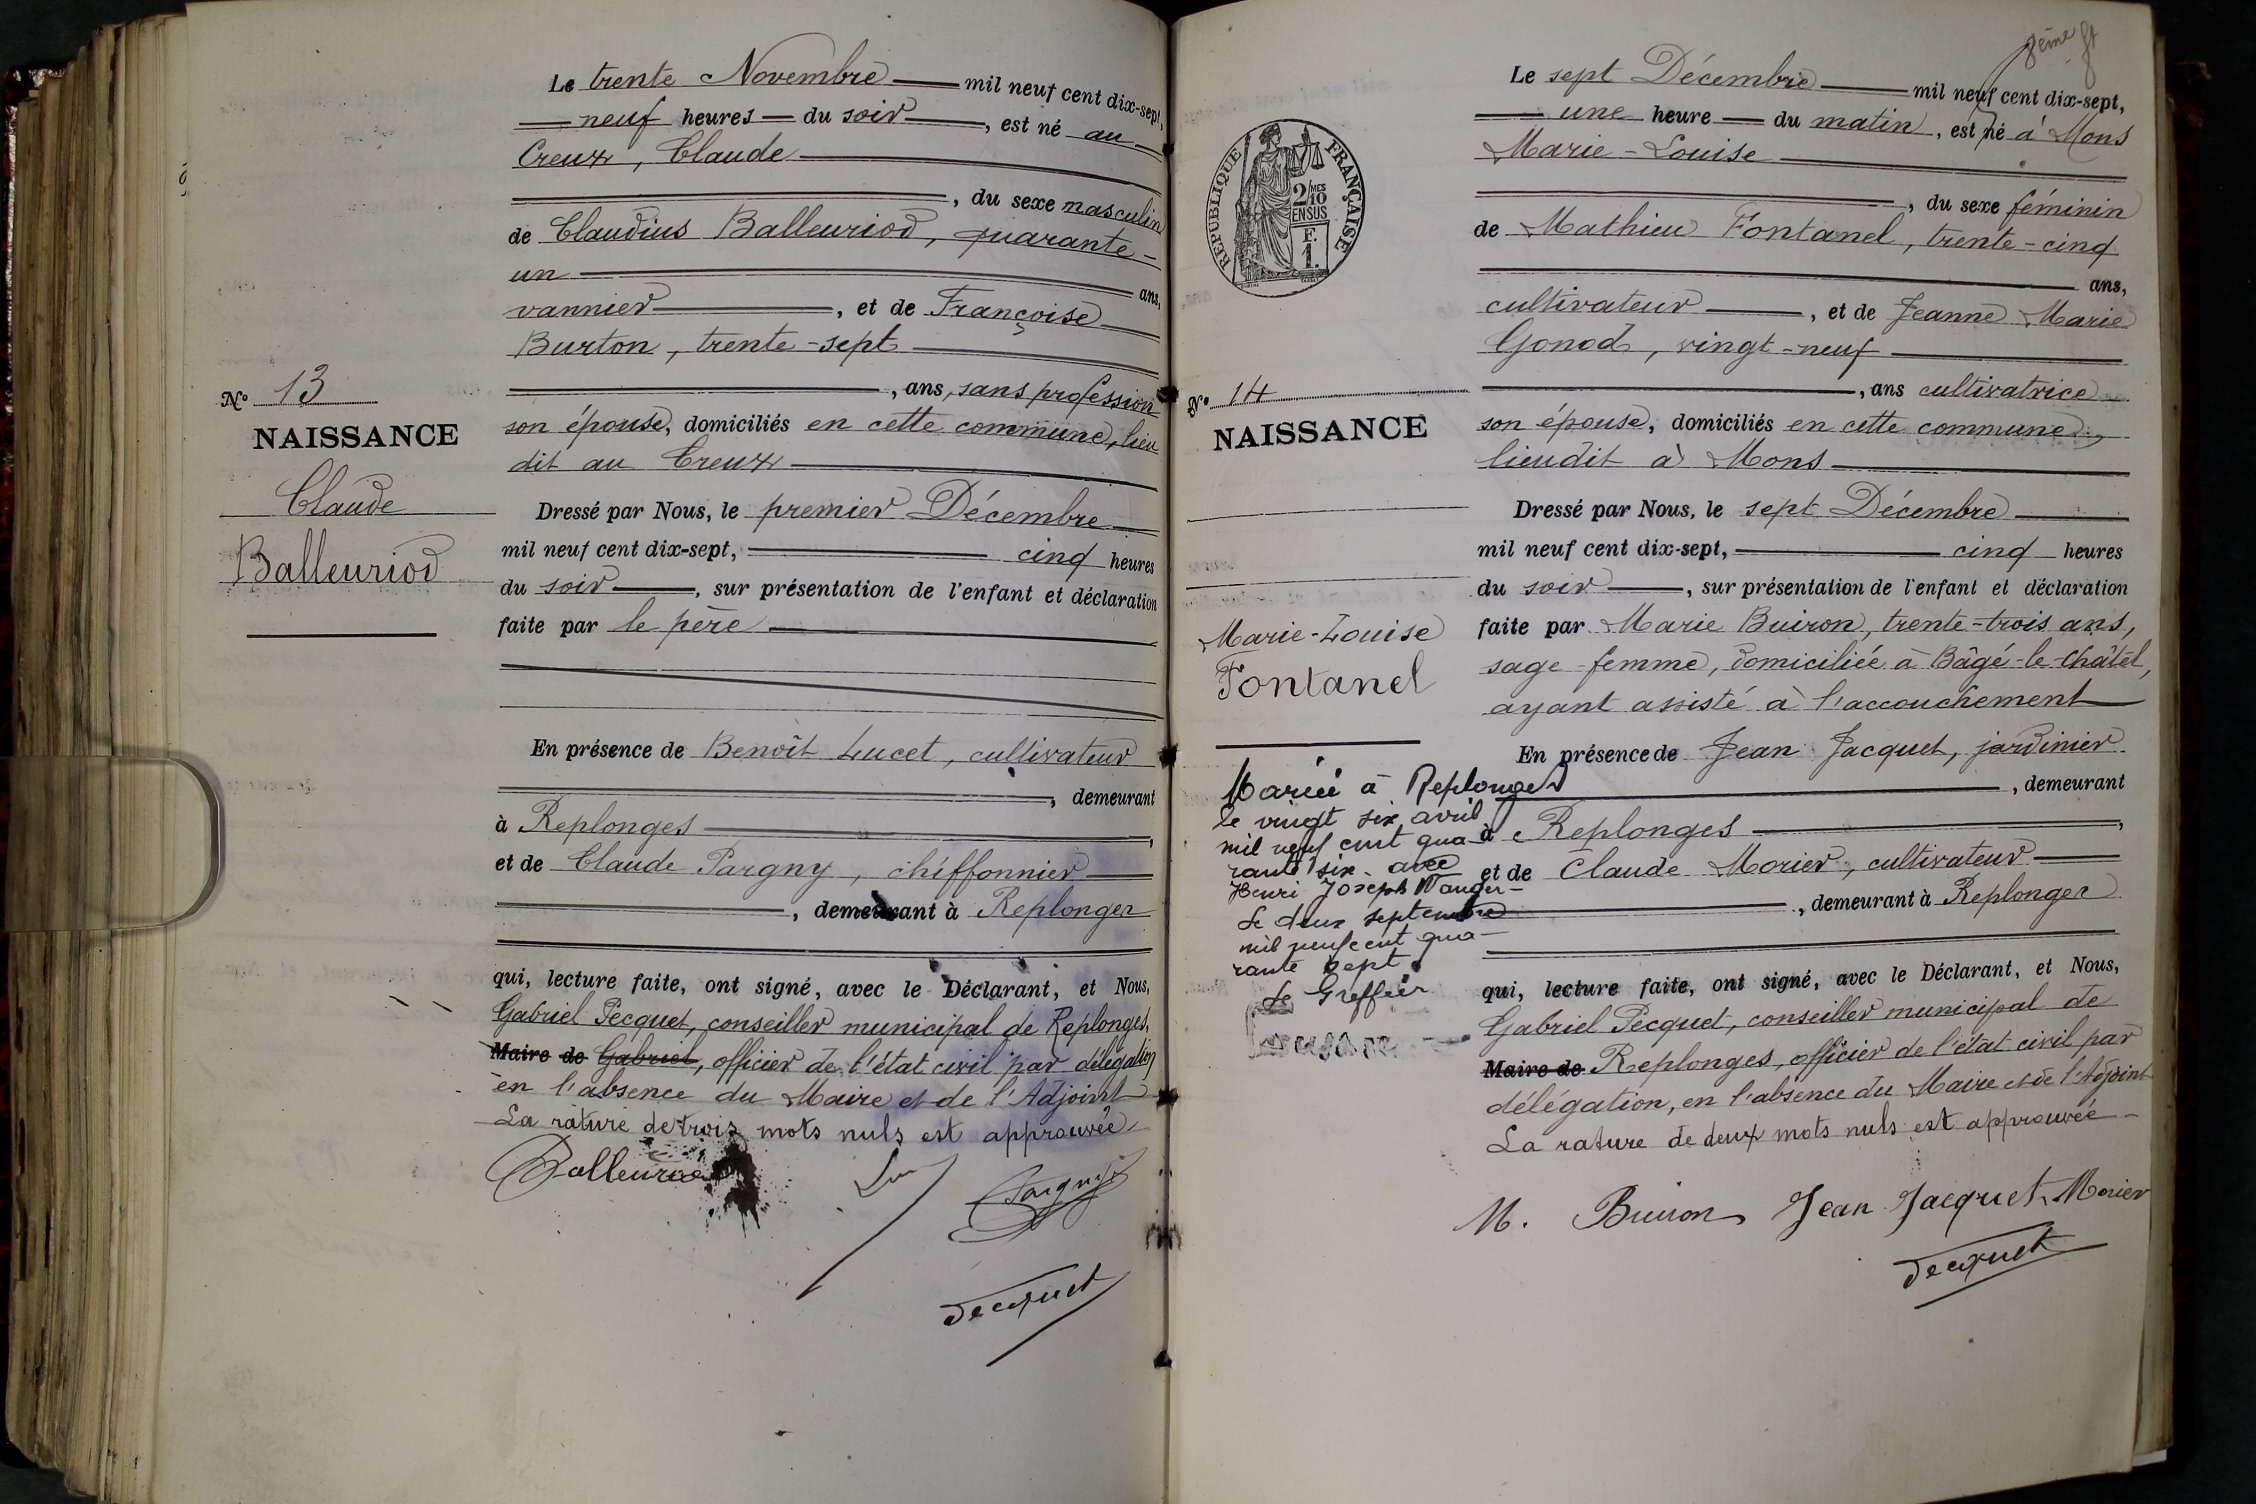 Le trente Novembre mil neuf cent dix-sept,
neuf heures du soir, est né au
Creux, Claude
, du sexe masculin
de Claudius Balleuriod, quarante-
un ans,
vannier, et de Françoise
Burton, trente-sept
, ans, sans profession
son épouse, domiciliés en cette commune, lieu
dit au Creux
No 13
NAISSANCE
Claude
Balleuriod
Dressé par Nous, le premier Décembre
mil neuf cent dix-sept, cinq heures
du soir, sur présentation de l'enfant et déclaration
faite par le père
En présence de Benoît Lucet, cultivateur
, demeurant
à Replonges,
et de Claude Pargny, chiffonnier
, demeurant à Replonges
qui, lecture faite, ont signé, avec le Déclarant, et Nous,
Gabriel Pecquet, conseiller municipal de Replonges,
Maire de Gabriel, officier de l'état civil par délégation
en l'absence du Maire et de l'Adjoint
La rature de trois mots nuls est approuvée
Balleuriod
Pargny
Pecquet
Le sept Décembre mil neuf cent dix-sept,
une heure du matin, est né à Mons
Marie-Louise
, du sexe féminin
de Mathieu Fontanel, trente-cinq
ans,
cultivateur, et de Jeanne Marie
Gonod, vingt-neuf
, ans cultivatrice
son épouse, domiciliés en cette commune,
lieudit à Mons
REPUBLIQUE FRANÇAISE
2/10
MES
EN SUS
F.
1.
No 14
NAISSANCE
Marie-Louise
Fontanel
Mariée à Replonges
le vingt six avril
mil neuf cent qua-
rante six avec
Henri Joseph
Le deux septembre
mil neuf cent qua-
rante sept
Le Greffier
Dressé par Nous, le sept Décembre
mil neuf cent dix-sept, cinq heures
du soir, sur présentation de l'enfant et déclaration
faite par Marie Buiron, trente-trois ans,
sage-femme, domiciliée à Bâgé-le-Châtel,
ayant assisté à l'accouchement
En présence de Jean Jacquet, jardinier
, demeurant
à Replonges,
et de Claude Morier, cultivateur
, demeurant à Replonges
qui, lecture faite, ont signé, avec le Déclarant, et Nous,
Gabriel Pecquet, conseiller municipal de
Maire de Replonges, officier de l'état civil par
délégation, en l'absence du Maire et de l'Adjoint
La rature de deux mots nuls est approuvée
M. Buiron Jean Jacquet Morier
Pecquet